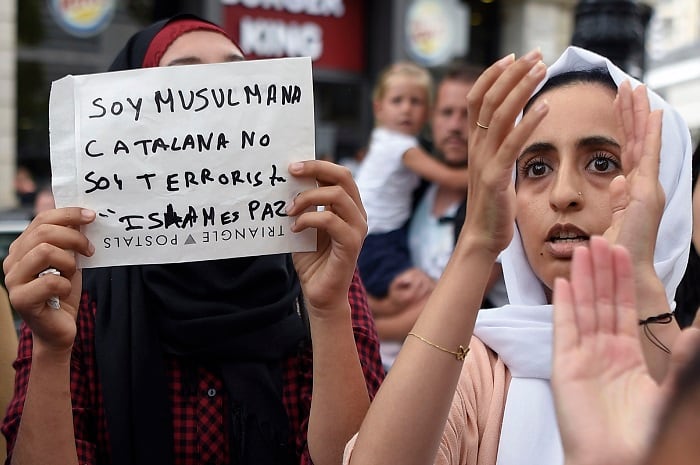 BURGER
KING
SOY MUSULMANA
CATALANA NO
SOY TERRORISTA
"ISLAM ES PAZ
TRIANGLE POSTALS